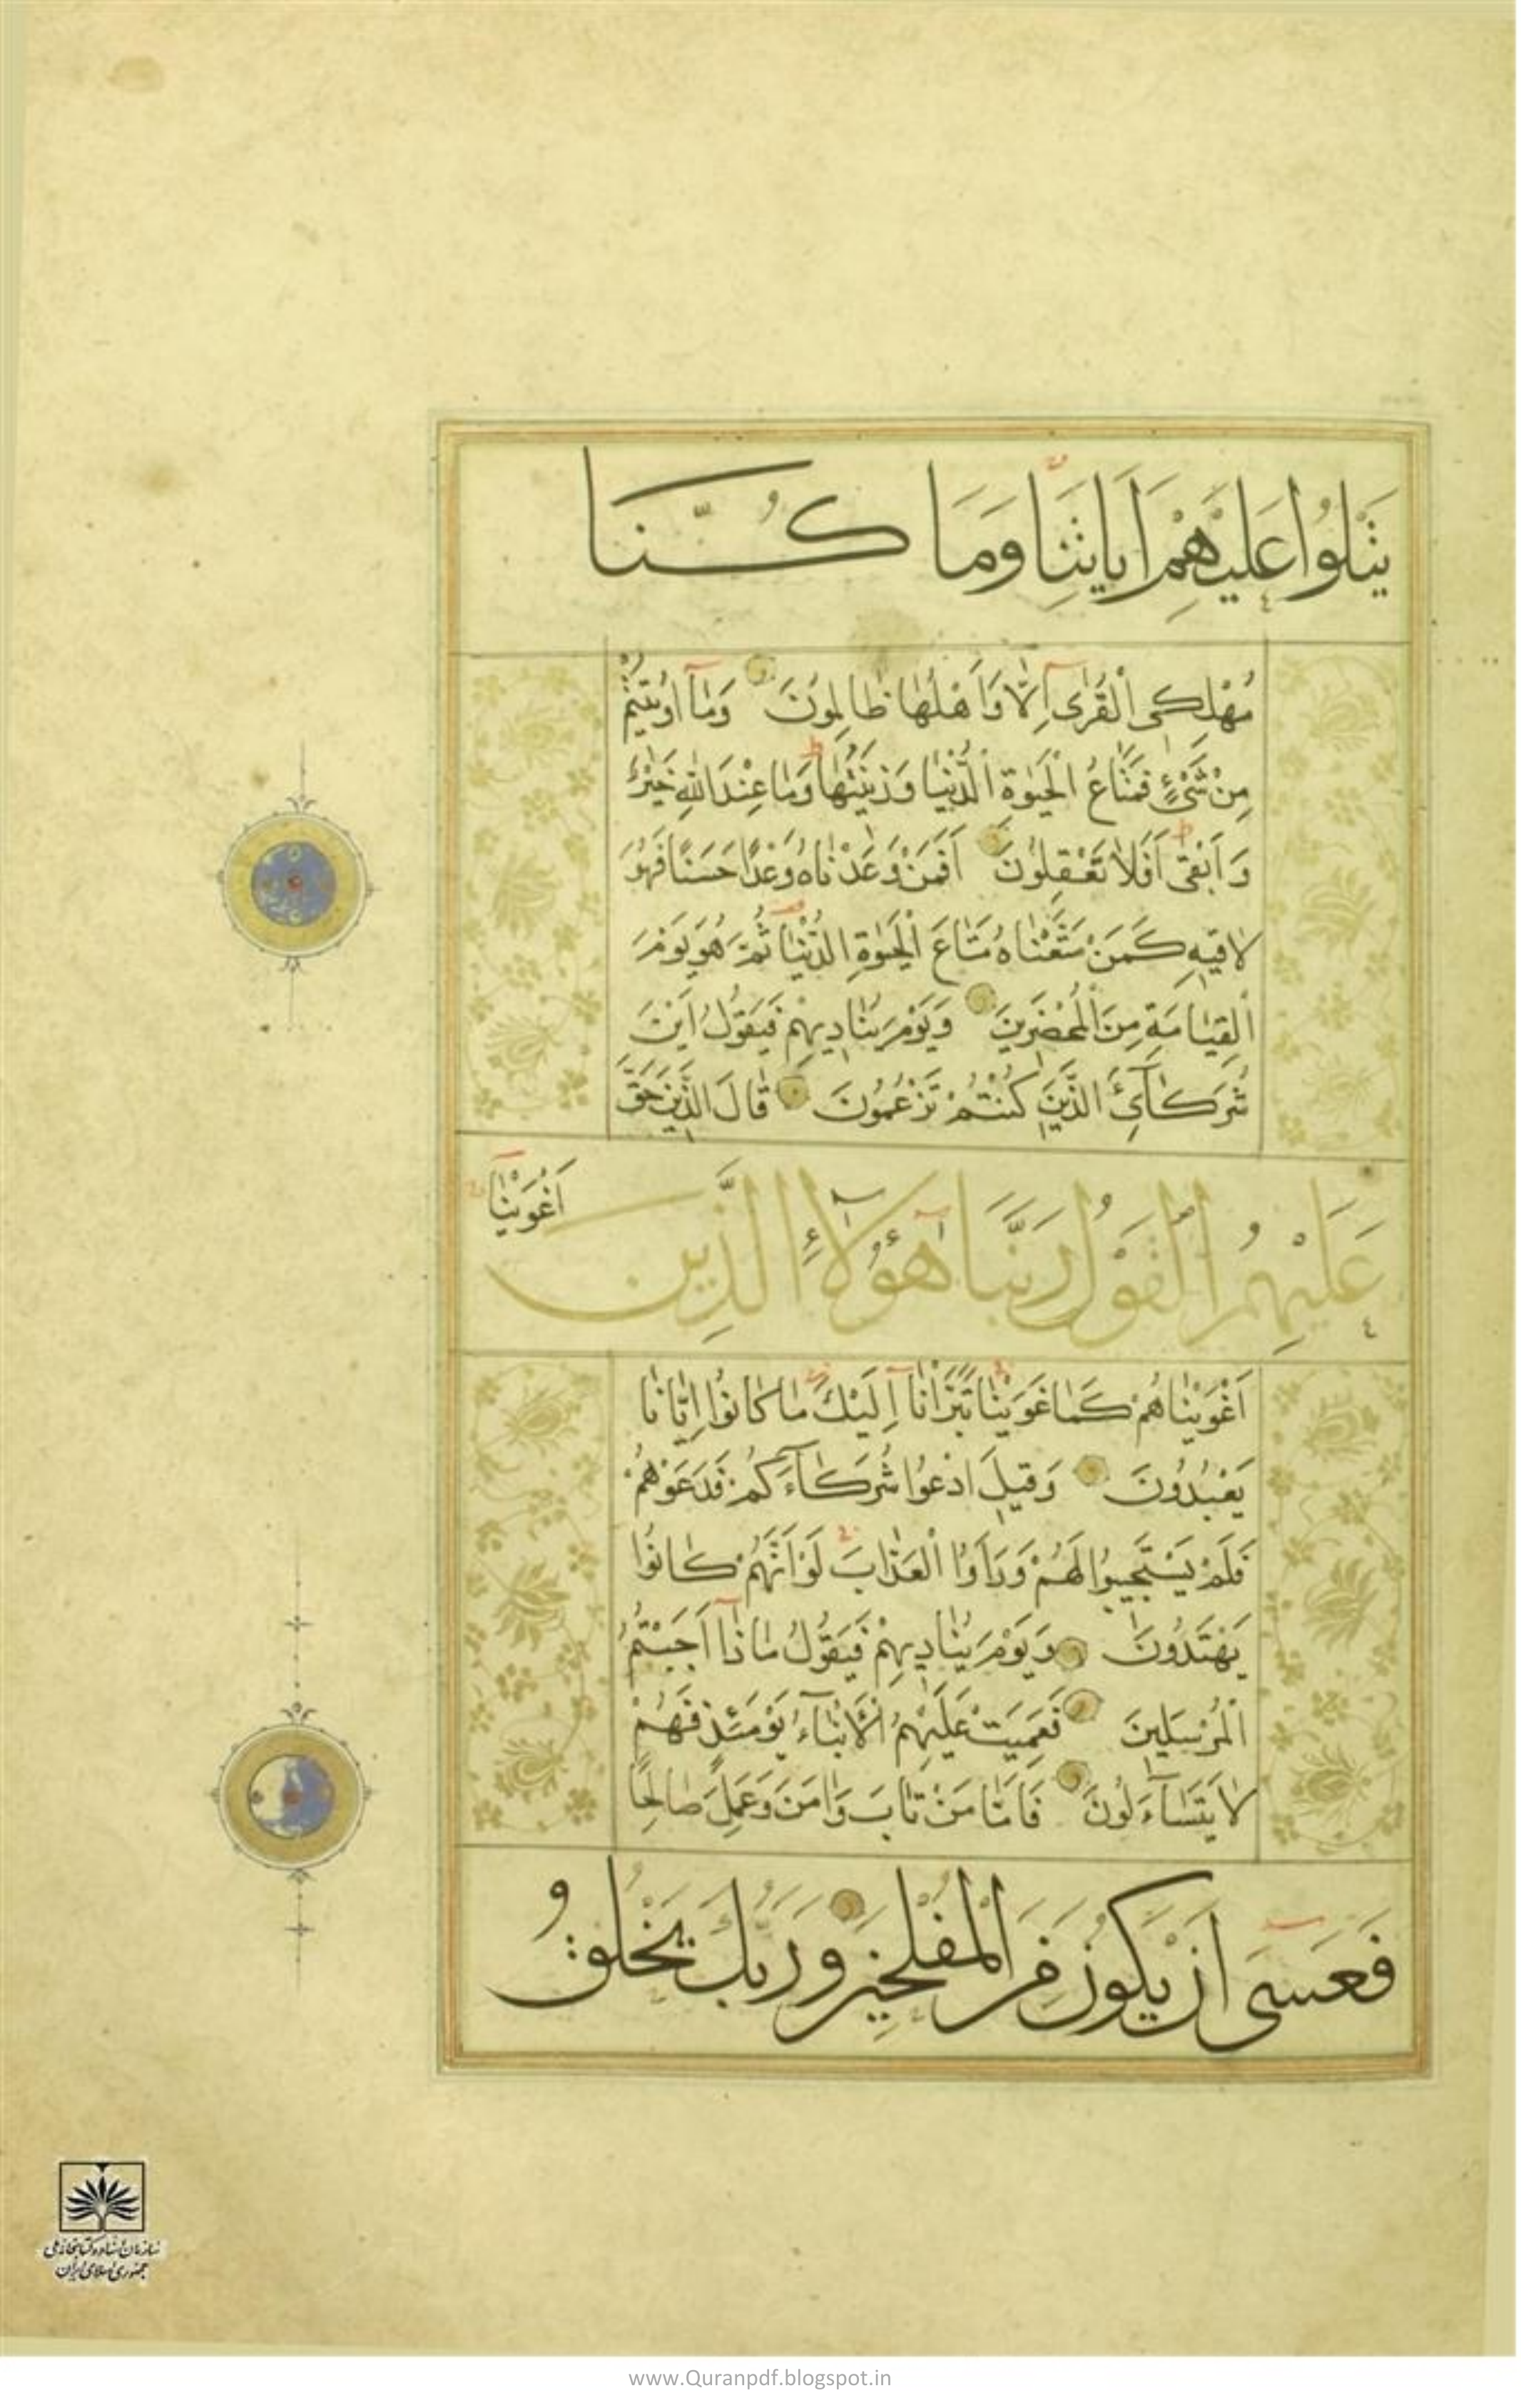 يَتْلُوا عَلَيْهِمْ اٰيَاتِنَا وَمَا كُنَّا
مُهْلِكِى الْقُرٰى اِلَّا وَاَهْلُهَا ظَالِمُونَ وَمَا اُوتِيتُمْ
مِنْ شَىْءٍ فَمَتَاعُ الْحَيٰوةِ الدُّنْيَا وَزِينَتُهَا وَمَا عِنْدَ اللّٰهِ خَيْرٌ
وَاَبْقٰى اَفَلَا تَعْقِلُونَ اَفَمَنْ وَعَدْنَاهُ وَعْدًا حَسَنًا فَهُوَ
لَاقِيهِ كَمَنْ مَتَّعْنَاهُ مَتَاعَ الْحَيٰوةِ الدُّنْيَا ثُمَّ هُوَ يَوْمَ
الْقِيَامَةِ مِنَ الْمُحْضَرِينَ وَيَوْمَ يُنَادِيهِمْ فَيَقُولُ اَيْنَ
شُرَكَآئِىَ الَّذِينَ كُنْتُمْ تَزْعُمُونَ قَالَ الَّذِينَ حَقَّ
عَلَيْهِمُ الْقَوْلُ رَبَّنَا هٰٓؤُلَآءِ الَّذِينَ اَغْوَيْنَا
اَغْوَيْنَاهُمْ كَمَا غَوَيْنَا تَبَرَّاْنَا اِلَيْكَ مَا كَانُوا اِيَّانَا
يَعْبُدُونَ وَقِيلَ ادْعُوا شُرَكَآءَكُمْ فَدَعَوْهُمْ
فَلَمْ يَسْتَجِيبُوا لَهُمْ وَرَاَوُا الْعَذَابَ لَوْ اَنَّهُمْ كَانُوا
يَهْتَدُونَ وَيَوْمَ يُنَادِيهِمْ فَيَقُولُ مَاذَا اَجَبْتُمُ
الْمُرْسَلِينَ فَعَمِيَتْ عَلَيْهِمُ الْاَنْبَآءُ يَوْمَئِذٍ فَهُمْ
لَا يَتَسَآءَلُونَ فَاَمَّا مَنْ تَابَ وَاٰمَنَ وَعَمِلَ صَالِحًا
فَعَسٰى اَنْ يَكُونَ مِنَ الْمُفْلِحِينَ وَرَبُّكَ يَخْلُقُ
سازمان اسناد و کتابخانه ملی
جمهوری اسلامی ایران
www.Quranpdf.blogspot.in